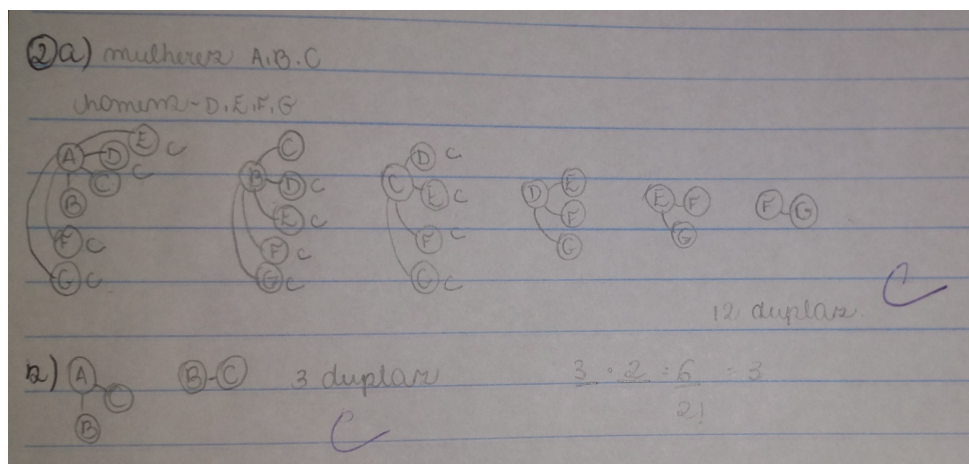 2 a) mulheres A, B, C
homens - D, E, F, G
A E C D C C B F C G C
B C D C E C F C G C
C D C E C F C G C
D E F G
E F G
F G
12 duplas.
b) A C B B - C 3 duplas 3 . 2 = 6 = 3
2!